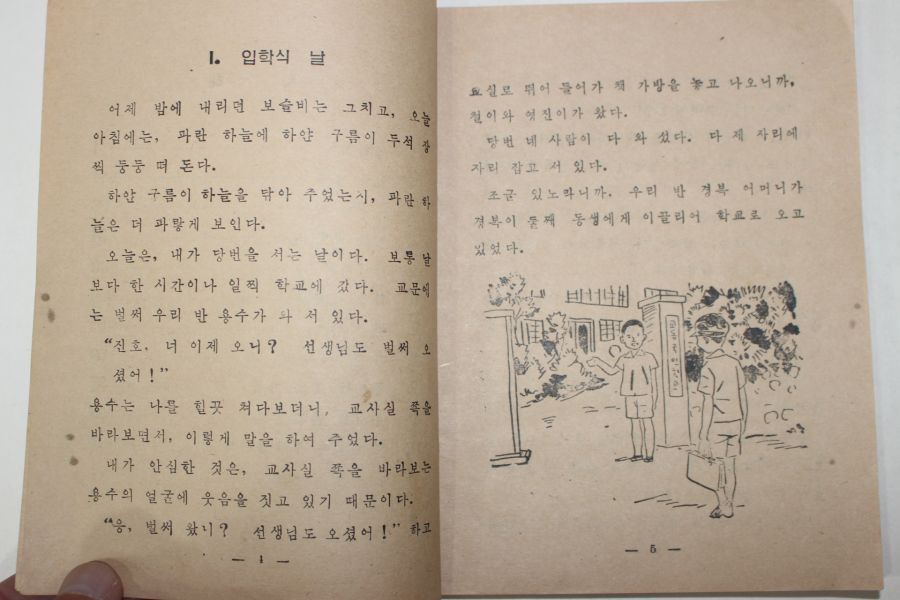 1. 입학식 날
어제 밤에 내리던 보슬비는 그치고, 오늘
아침에는, 파란 하늘에 하얀 구름이 두석 장
씩 둥둥 떠 돈다.
하얀 구름이 하늘을 닦아 주었는지, 파란 하
늘은 더 파랗게 보인다.
오늘은, 내가 당번을 서는 날이다. 보통 날
보다 한 시간이나 일찍 학교에 갔다. 교문에
는 벌써 우리 반 용수가 와 서 있다.
“진호, 너 이제 오니? 선생님도 벌써 오
셨어!”
용수는 나를 힐끗 쳐다보더니, 교사실 쪽을
바라보면서, 이렇게 말을 하여 주었다.
내가 안심한 것은, 교사실 쪽을 바라보는
용수의 얼굴에 웃음을 짓고 있기 때문이다.
“응, 벌써 왔니? 선생님도 오셨어!” 하고
— 4 —
교실로 뛰어 들어가 책 가방을 놓고 나오니까,
철이와 영진이가 왔다.
당번 네 사람이 다 와 섰다. 다 제 자리에
자리 잡고 서 있다.
조금 있노라니까. 우리 반 경복 어머니가
경복이 둘째 동생에게 이끌리어 학교로 오고
있었다.
— 5 —